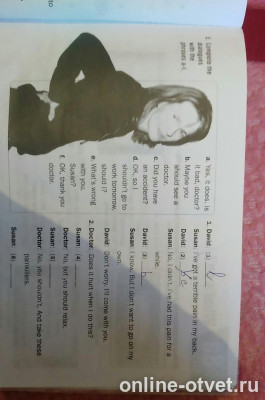 1. Complete the
dialogues
with the
phrases a-f.
a. Yes, it does. Is
it bad, doctor?
b. Maybe you
should see a
doctor.
c. Did you have
an accident?
d. OK, so I
shouldn't go to
work tomorrow,
should I?
e. What's wrong
with you,
Susan?
f. OK, thank you
doctor.
1. David: (1)
Susan: I've got a terrible pain in my back.
David: (2)
Susan: No, I didn't. I've had this pain for a
while.
David: (3) b
Susan: I know. But I don't want to go on my
own.
David: Don't worry. I'll come with you.
2. Doctor: Does it hurt when I do this?
Susan: (4)
Doctor: No, but you should relax.
Susan: (5)
Doctor: No, you shouldn't. And take these
painkillers.
Susan: (6)
online-otvet.ru